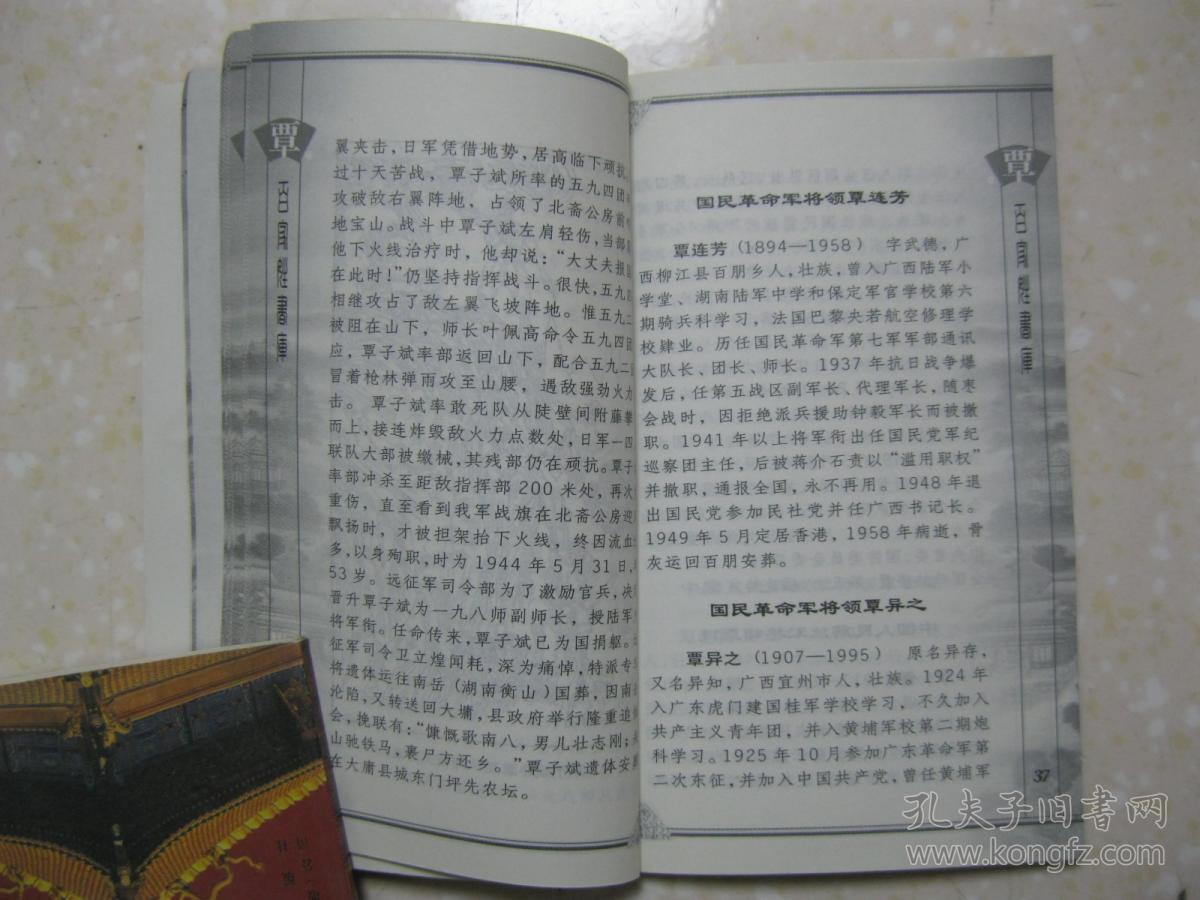 覃
百家姓書庫
翼夹击，日军凭借地势，居高临下顽抗。
过十天苦战，覃子斌所率的五九四团
攻破敌右翼阵地，占领了北斋公房前
地宝山。战斗中覃子斌左肩轻伤，当部
他下火线治疗时，他却说：“大丈夫报
在此时！”仍坚持指挥战斗。很快，五九四
相继攻占了敌左翼飞坡阵地。惟五九二
被阻在山下，师长叶佩高命令五九四团
应，覃子斌率部返回山下，配合五九二
冒着枪林弹雨攻至山腰，遇敌强劲火力
击。覃子斌率敢死队从陡壁间附藤攀
而上，接连炸毁敌火力点数处，日军一四
联队大部被缴械，其残部仍在顽抗。覃子
率部冲杀至距敌指挥部 200 米处，再次
重伤，直至看到我军战旗在北斋公房迎
飘扬时，才被担架抬下火线，终因流血
多，以身殉职，时为 1944 年 5 月 31 日，
53 岁。远征军司令部为了激励官兵，决
晋升覃子斌为一九八师副师长，授陆军
将军衔。任命传来，覃子斌已为国捐躯。
征军司令卫立煌闻耗，深为痛悼，特派专
将遗体运往南岳（湖南衡山）国葬，因南
沦陷，又转送回大墉，县政府举行隆重追
会，挽联有：“慷慨歌南八，男儿壮志刚；
山驰铁马，裹尸方还乡。”覃子斌遗体安
在大庸县城东门坪先农坛。
国民革命军将领覃连芳
覃连芳（1894—1958） 字武德，广
西柳江县百朋乡人，壮族，曾入广西陆军小
学堂、湖南陆军中学和保定军官学校第六
期骑兵科学习，法国巴黎央若航空修理学
校肄业。历任国民革命军第七军军部通讯
大队长、团长、师长。1937 年抗日战争爆
发后，任第五战区副军长、代理军长，随枣
会战时，因拒绝派兵援助钟毅军长而被撤
职。1941 年以上将军衔出任国民党军纪
巡察团主任，后被蒋介石责以“滥用职权”
并撤职，通报全国，永不再用。1948 年退
出国民党参加民社党并任广西书记长。
1949 年 5 月定居香港，1958 年病逝，骨
灰运回百朋安葬。
国民革命军将领覃异之
覃异之（1907—1995） 原名异存，
又名异知，广西宜州市人，壮族。1924 年
入广东虎门建国桂军学校学习，不久加入
共产主义青年团，并入黄埔军校第二期炮
科学习。1925 年 10 月参加广东革命军第
二次东征，并加入中国共产党，曾任黄埔军
覃
百家姓書庫
37
孔夫子旧书网
www.kongfz.com